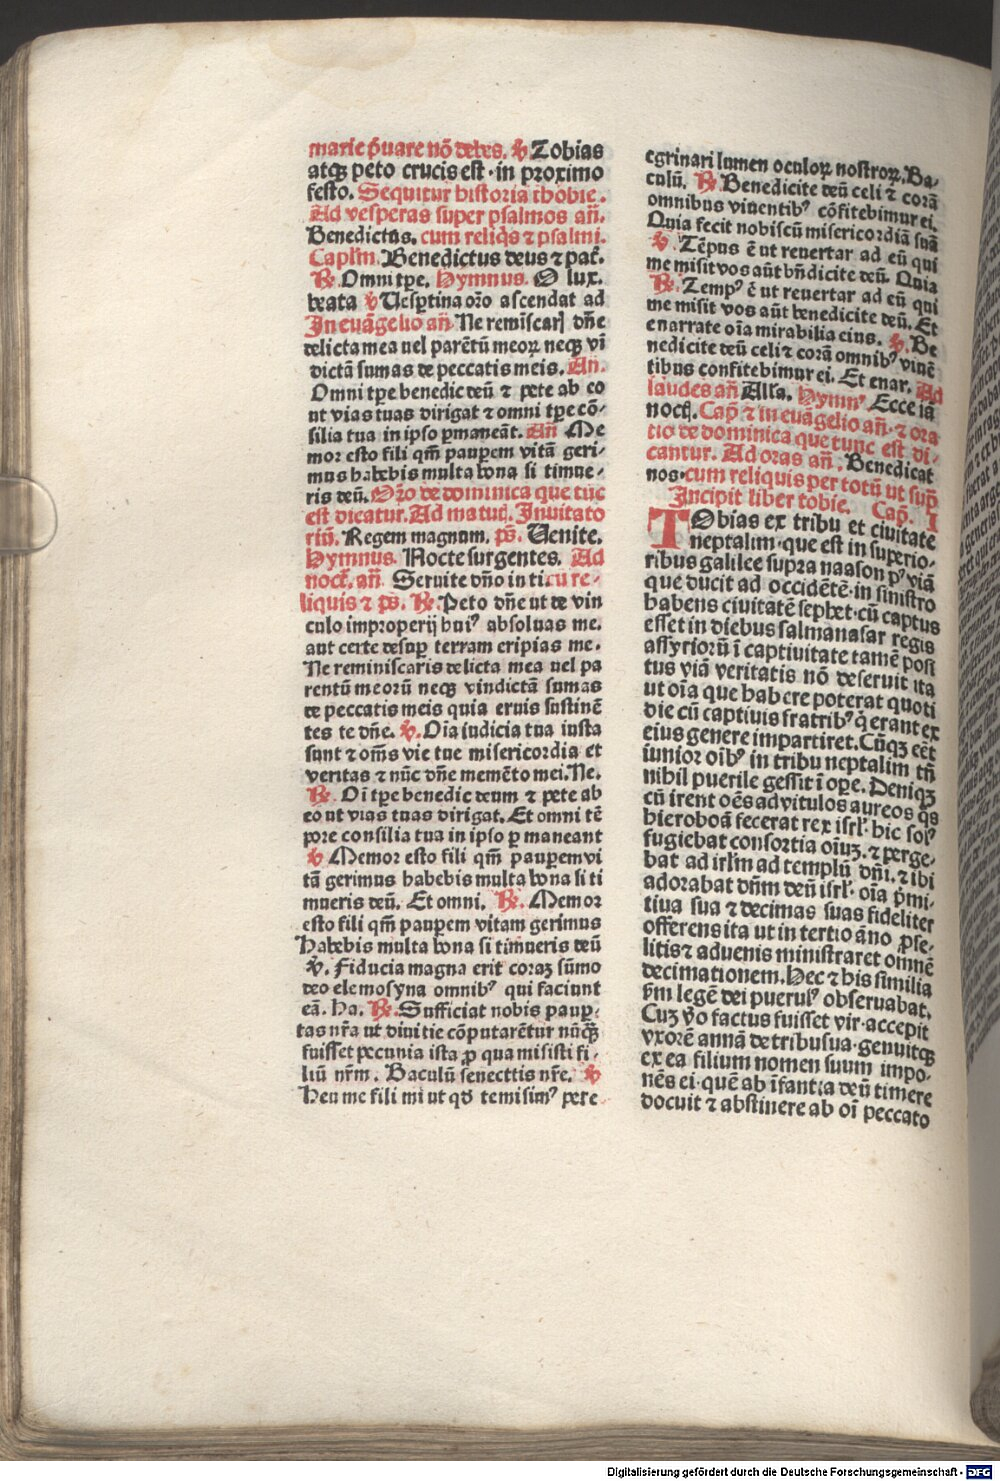 marie p̄uare nō debes. ꝟ Tobias
atqꝫ peto crucis est · in proximo
festo. Sequitur historia thobie.
Ad vesperas super psalmos añ.
Benedictus. cum reliq̄s ⁊ psalmi.
Caplm̄. Benedictus deus ⁊ pat̄.
℟. Omni tp̄e. Hymnus. O lux.
beata ꝟ Uesp̄tina or̄o ascendat ad
In euāgelio añ Ne remīscaꝝ dn̄e
delicta mea uel parētū meoꝝ neqꝫ vī
dictā sumas de peccatis meis. An̄.
Omni tp̄e benedic deū ⁊ pete ab eo
ut vias tuas dirigat ⁊ omni tp̄e cō-
silia tua in ipso ꝑmaneāt. An̄ Me
mor esto fili qm̄ pauꝑem vitā geri-
mus habebis multa bona si timue-
ris deū. Or̄o de dominica que tūc
est dicatur. Ad matut̄. Inuitato
riū. Regem magnum. ps̄. Uenite.
Hymnus. Nocte surgentes. Ad
noct̄. an̄ Seruite dn̄o in ti. cū re-
liquis ⁊ ps̄. ℟. Peto dn̄e ut de vin
culo improperij huiꝰ absoluas me.
aut certe desuꝑ terram eripias me.
Ne reminiscaris delicta mea uel pa
rentū meorū neqꝫ vindictā sumas
de peccatis meis quia eruis sustinē
tes te dn̄e. ꝟ. Oīa iudicia tua iusta
sunt ⁊ om̄s vie tue misericordia et
veritas ⁊ nūc dn̄e memēto mei. Ne.
℟. Oī tp̄e benedic deum ⁊ pete ab
eo ut vias tuas dirigat. Et omni tē
pore consilia tua in ipso ꝑ maneant
ꝟ Memor esto fili qm̄ pauꝑem vi
tā gerimus habebis multa bona si ti
mueris deū. Et omni. ℟. Memor
esto fili qm̄ pauꝑem vitam gerimus
Habebis multa bona si timueris deū
ꝟ. Fiducia magna erit coraꝫ sūmo
deo elemosyna omnibꝰ qui faciunt
eā. Ha. ℟. Sufficiat nobis pauꝑ-
tas nr̄a ut diuitie cōputarētur nūqꝫ
fuisset pecunia ista ꝓ qua misisti fi-
liū nr̄m. Baculū senecttis nr̄e. ꝟ
Heu me fili mi ut qd̄ te misimꝰ pere
egrinari lumen oculoꝝ nostroꝝ. Ba-
culū. ℟. Benedicite deū celi ⁊ corā
omnibus viuentibꝰ cōfitebimur ei.
Quia fecit nobiscū misericordiā suā
ꝟ. Tēpus ē ut reuertar ad eū qui
me misit vos aūt bn̄dicite deū. Quia
℟. Tempꝰ ē ut reuertar ad eū qui
me misit vos aūt benedicite deū. Et
enarrate oīa mirabilia eius. ꝟ. Be
nedicite deū celi ⁊ corā omnibꝰ viuē
tibus confitebimur ei. Et enar. Ad
laudes an̄ Alľa. Hymnꝰ Ecce iā
noct̄. Cap̄. ⁊ in euāgelio an̄. ⁊ ora
tio de dominica que tunc est di-
cantur. Ad oras an̄. Benedicat
nos. cum reliquis per totū ut sup̄
Incipit liber tobie. Cap̄. I
TObias ex tribu et ciuitate
neptalim · que est in superio-
ribus galilee supra naason pꝰ viā
que ducit ad occidētē · in sinistro
habens ciuitatē sephet · cū captus
esset in diebus salmanasar regis
assyriorū ī captiuitate tamē posi
tus viā veritatis nō deseruit ita
ut oīa que habere poterat quoti
die cū captiuis fratribꝰ q̄ erant ex
eius genere impartiret. Cūqꝫ eēt
iunior oībꝰ in tribu neptalim tn̄
nihil puerile gessit ī oꝑe. Deniqꝫ
cū irent oēs ad vitulos aureos q̄s
hieroboā fecerat rex isrl̄ · hic solꝰ
fugiebat consortia oīuꝫ · ⁊ perge-
bat ad irl̄m ad templū dn̄i · ⁊ ibi
adorabat dn̄m deū isrl̄ · oīa p̄mi-
tiua sua ⁊ decimas suas fideliter
offerens ita ut in tertio āno ꝓse-
litis ⁊ aduenis ministraret omnē
decimationem. Hec ⁊ his similia
ẜm legē dei puerulꝰ obseruabat.
Cuꝫ v̄o factus fuisset vir · accepit
vxorē annā de tribu sua · genuitqꝫ
ex ea filium nomen suum impo-
nēs ei · quē ab īfantia deū timere
docuit ⁊ abstinere ab oī peccato
Digitalisierung gefördert durch die Deutsche Forschungsgemeinschaft - DFG